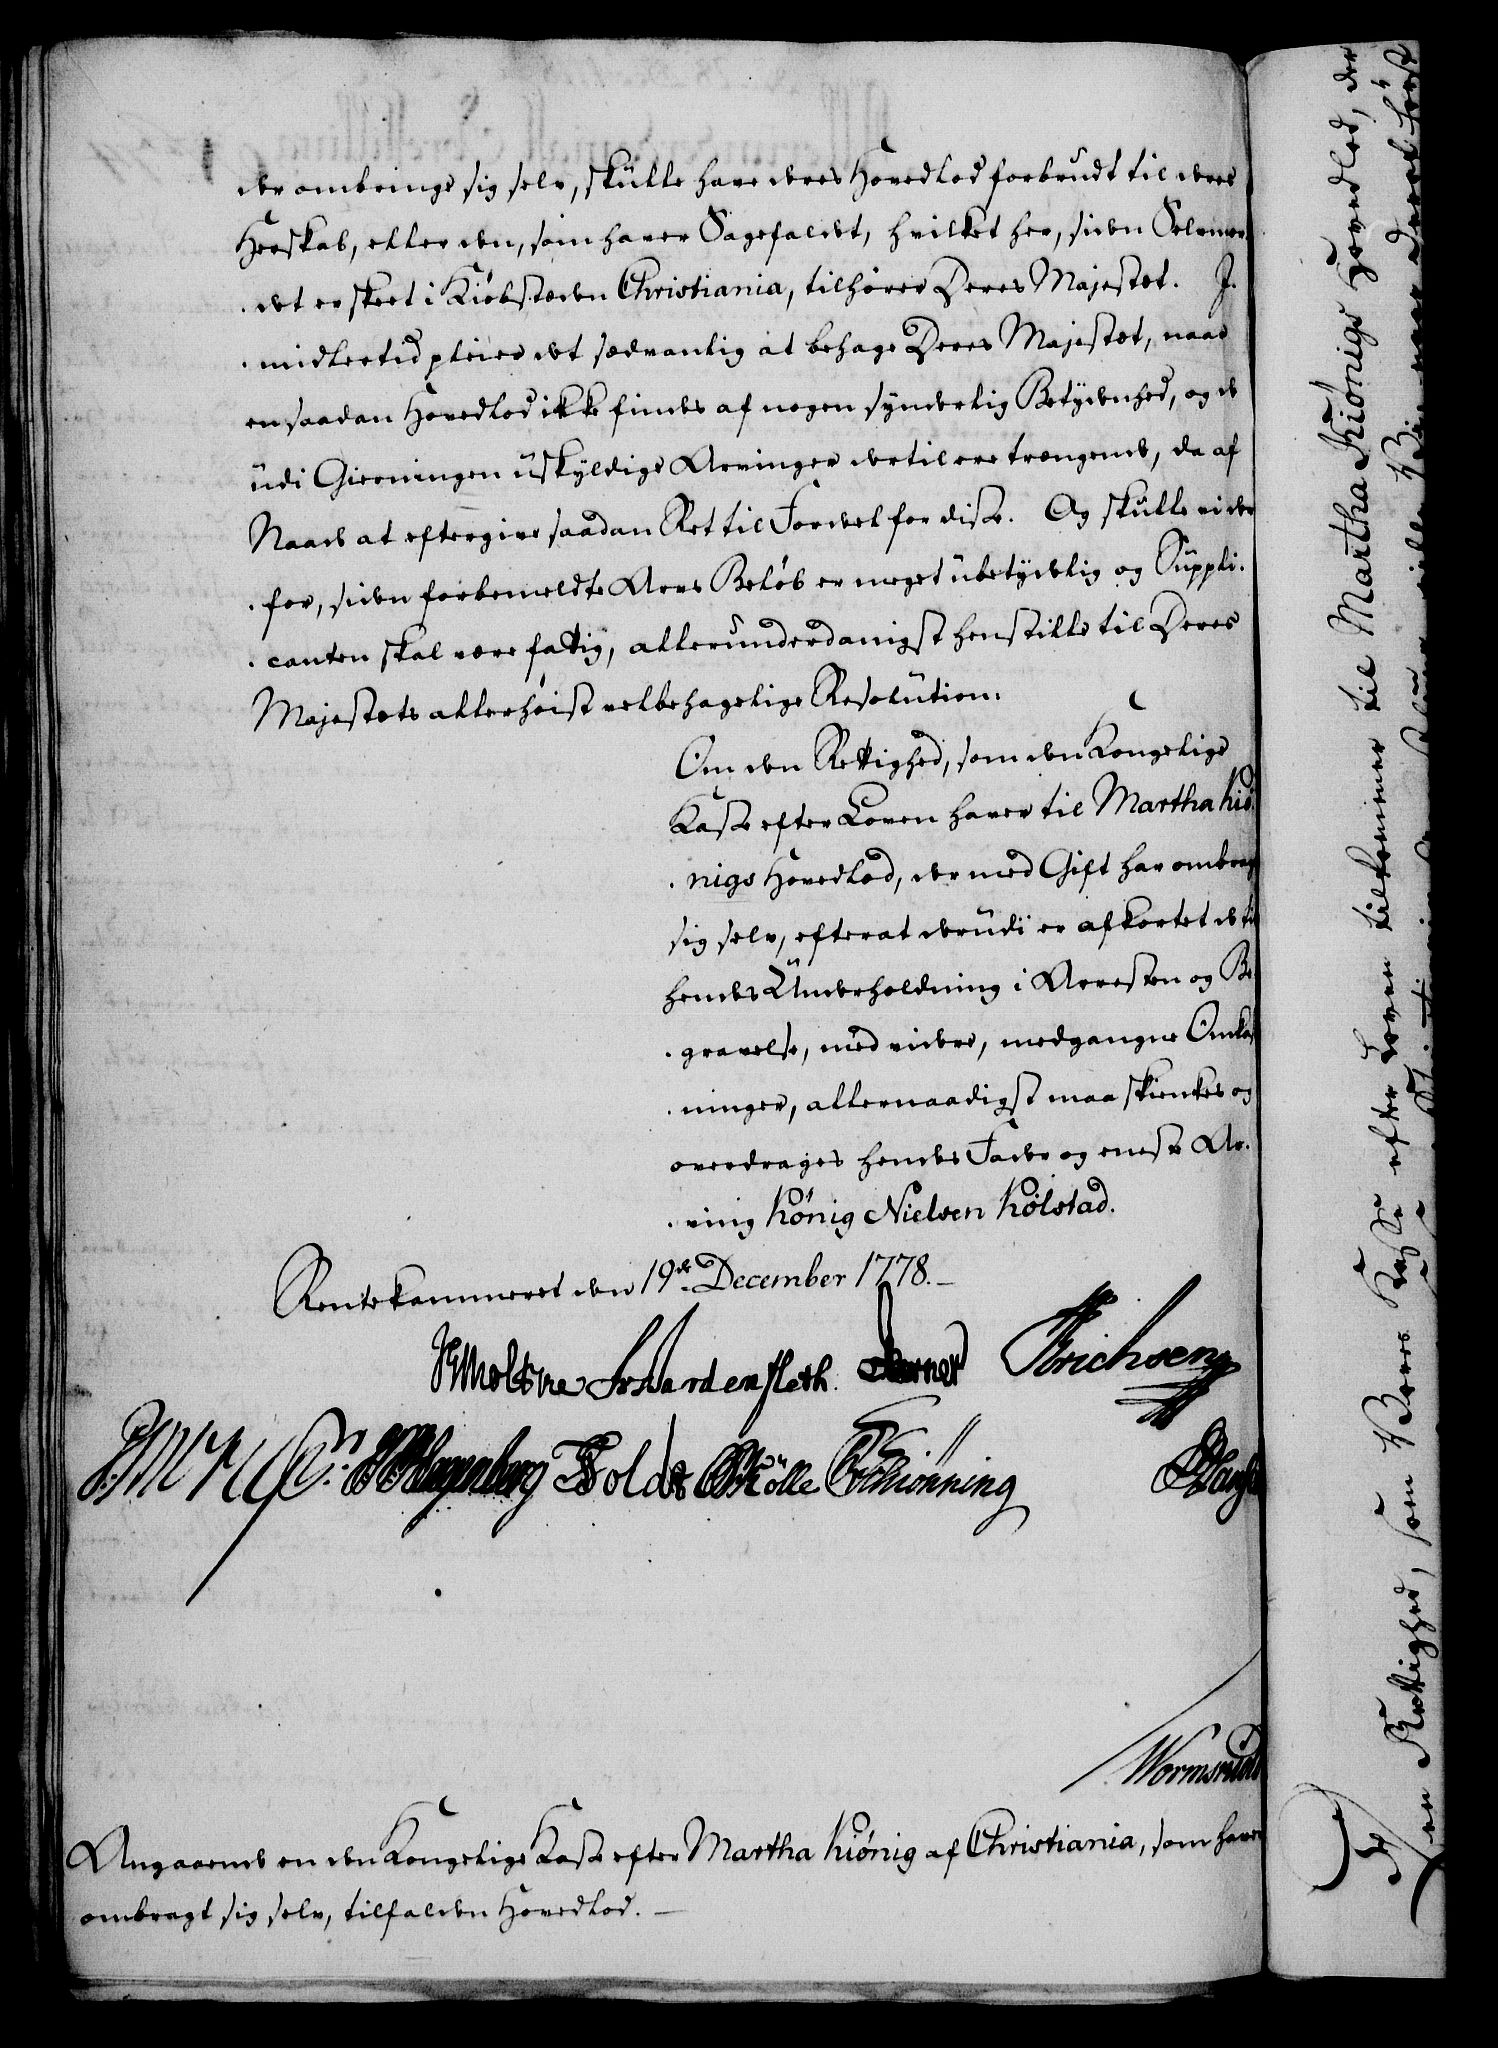 der ombringe sig selv, skulle have deres Hovedlod forbrudt til deres
Herskab, eller den, som haver Sagefaldet, hvilket her, siden Selvmor-
det er skeet i Kiøbstæden Christiania, tilhører Deres Majestet. J-
midlertid pleier det sædvanlig at behage Deres Majestet, naar
en saadan Hovedlod ikke findes af nogen synderlig Betydenhed, og de
udi Gierningen uskyldige Arvinger dertil ere trængende, da af
Naade at eftergive saadan Ret til Fordeel for disse. Og skulle vi der-
for, siden forbemeldte Arvs Beløb er meget ubetydelig og Suppli-
canten skal være fattig, allerunderdanigst henstille til Deres
Majestets allerhøist velbehagelige Resolution:
Om den Rettighed, som den Kongelige
Kasse efter Loven haver til Martha Kiø-
nigs Hovedlod, der med Gift har ombragt
sig selv, efterat derudi er afkortet de til
hendes Underholdning i Arresten og Be-
gravelse, med videre, medgangne Omkost-
ninger, allernaadigst maa skienkes og
overdrages hendes Fader og eneste Ar-
ving König Nielsen Kølstad.
Rentekammeret den 19de December 1778.
HMoltke Schardenfleth. Berner Erichsen
Hagenberg Kolde Kölle Schiönning
Wormskiold
Angaaende en den Kongelige Kasse efter Martha Kiönig af Christiania, som haver
ombragt sig selv, tilfalden Hovedlod.
Den Rettighed, som Vores Kasse efter Loven tilkommer til Martha Kiönigs Hovedlod, der